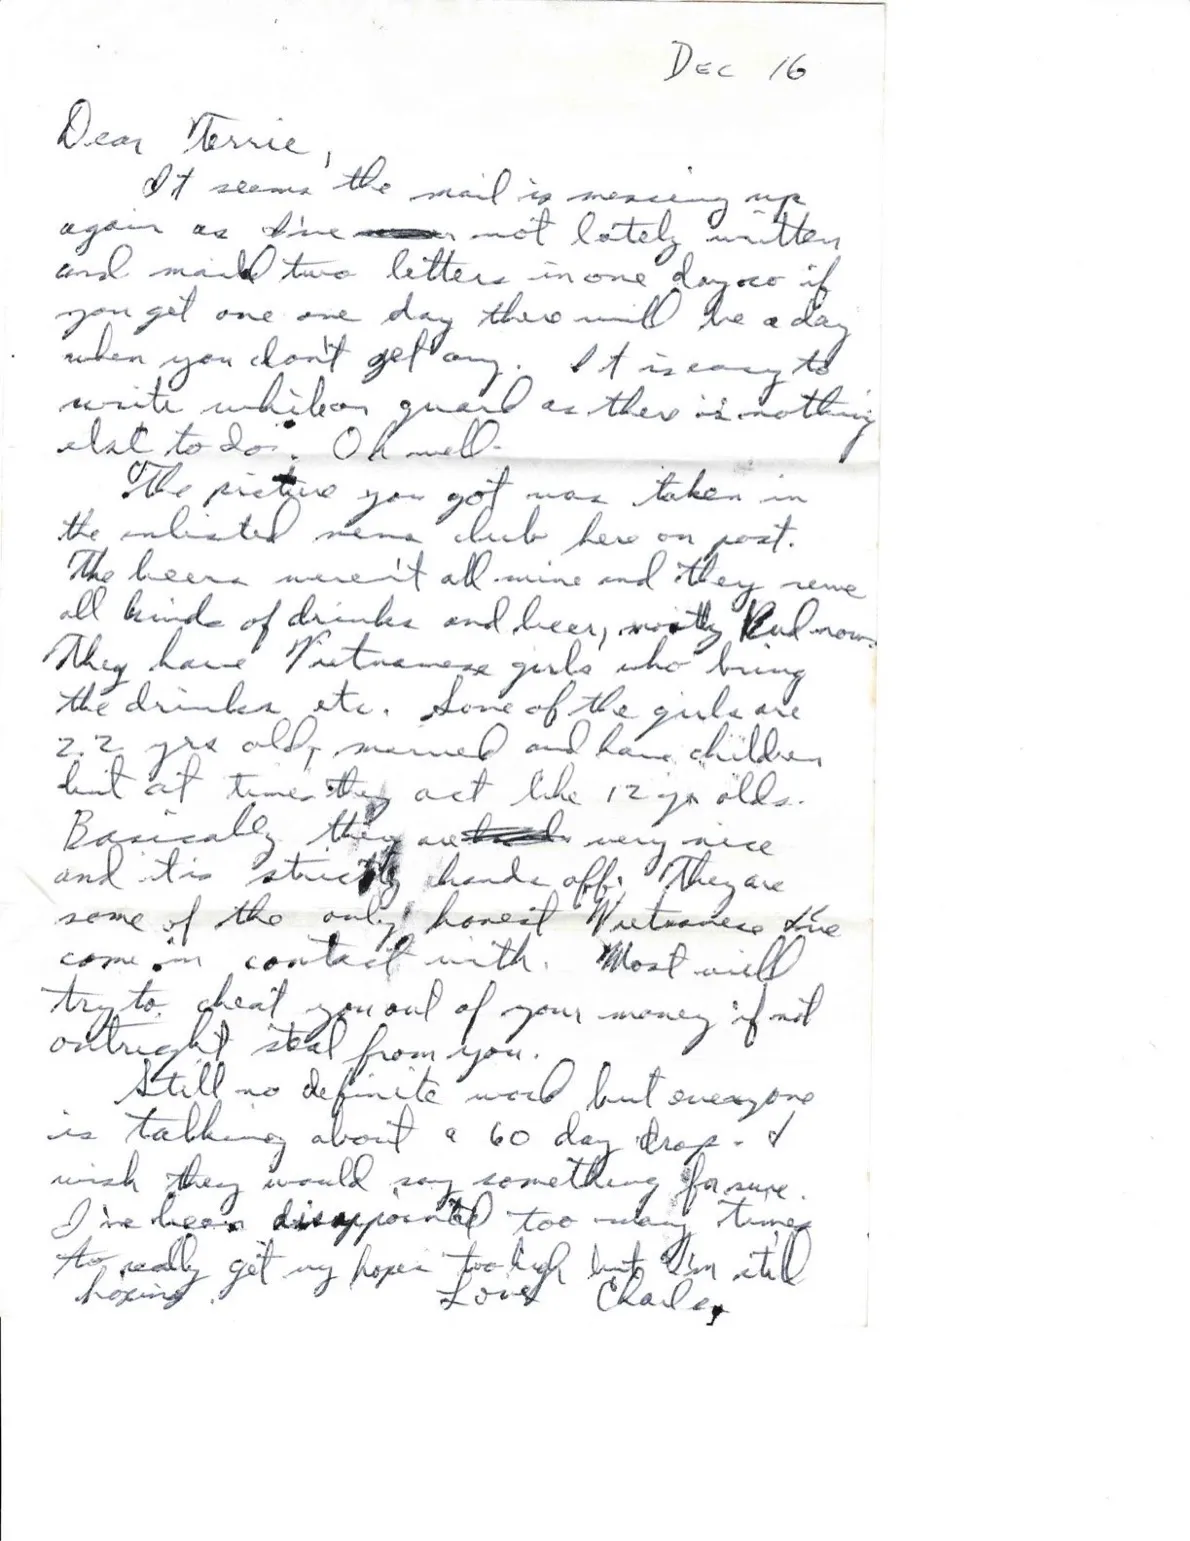 Dec 16
Dear Terrie,
It seems the mail is messing up
again as I've not lately written
and mailed two letters in one day so if
you get one one day there will be a day
when you don't get any. It is easy to
write while on guard as there is nothing
else to do. Oh well-
The picture you got was taken in
the enlisted mens club here on post.
The beers weren't all mine and they serve
all kinds of drinks and beer, mostly Bud now.
They have Vietnamese girls who bring
the drinks etc. Some of the girls are
22 yrs old, married and have children
but at times they act like 12 yr olds.
Basically they are very nice
and it is strictly hands off. They are
some of the only honest Vietnamese I've
come in contact with. Most will
try to cheat you out of your money if not
outright steal from you.
Still no definite word but everyone
is talking about a 60 day drop - I
wish they would say something for sure.
I've been disappointed too many times
to really get my hopes too high but I'm still
hoping. Love Charles